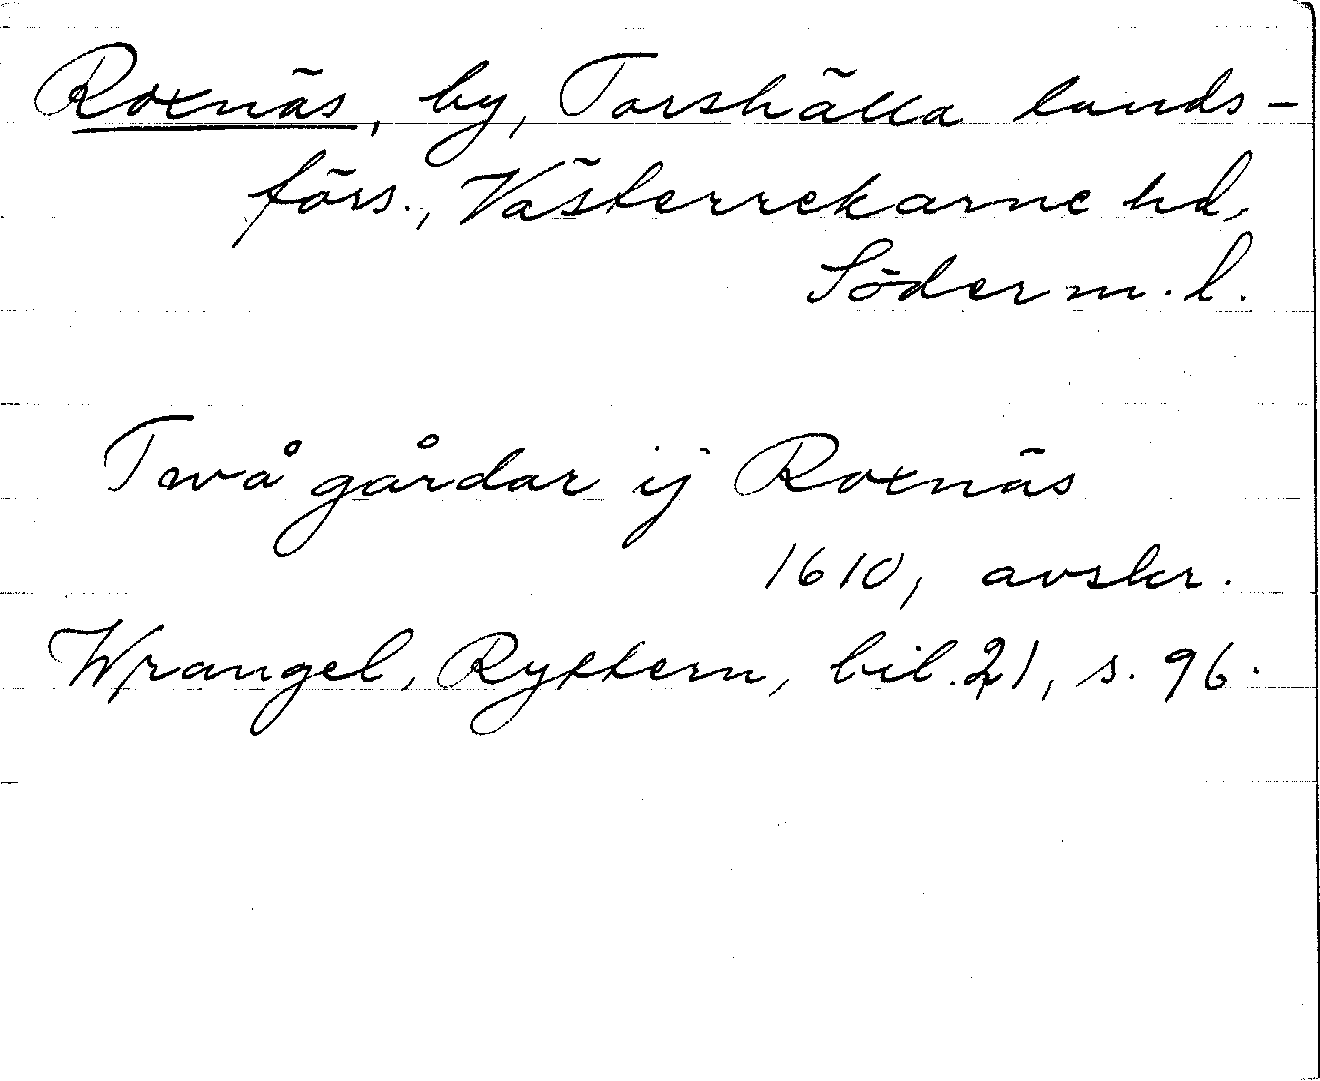 Roxnäs, by, Torshälla lands-
förs., Västerrekarne hd,
Söderm. l.
Twå gårdar ij Roxnäs
1610, avskr.
Wrangel, Ryttern, bil. 21, s. 96.